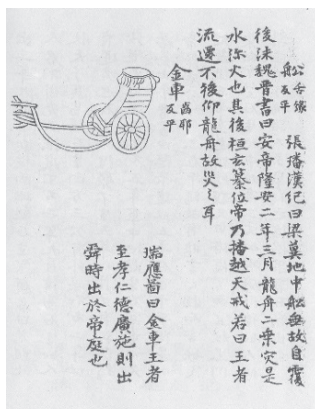 船 反平 張璠漢紀曰梁冀地中船無故自覆
後沫魏晉書曰安帝隆安二年三月龍舟二乗災是
水沵火也其後桓玄篡位帝乃播越天戒若曰王者
流遷不後仰龍舟故災之耳
金車 昌耶反平
瑞應啚曰金車王者
至孝仁德廣施則出
舜時出於帝庭也